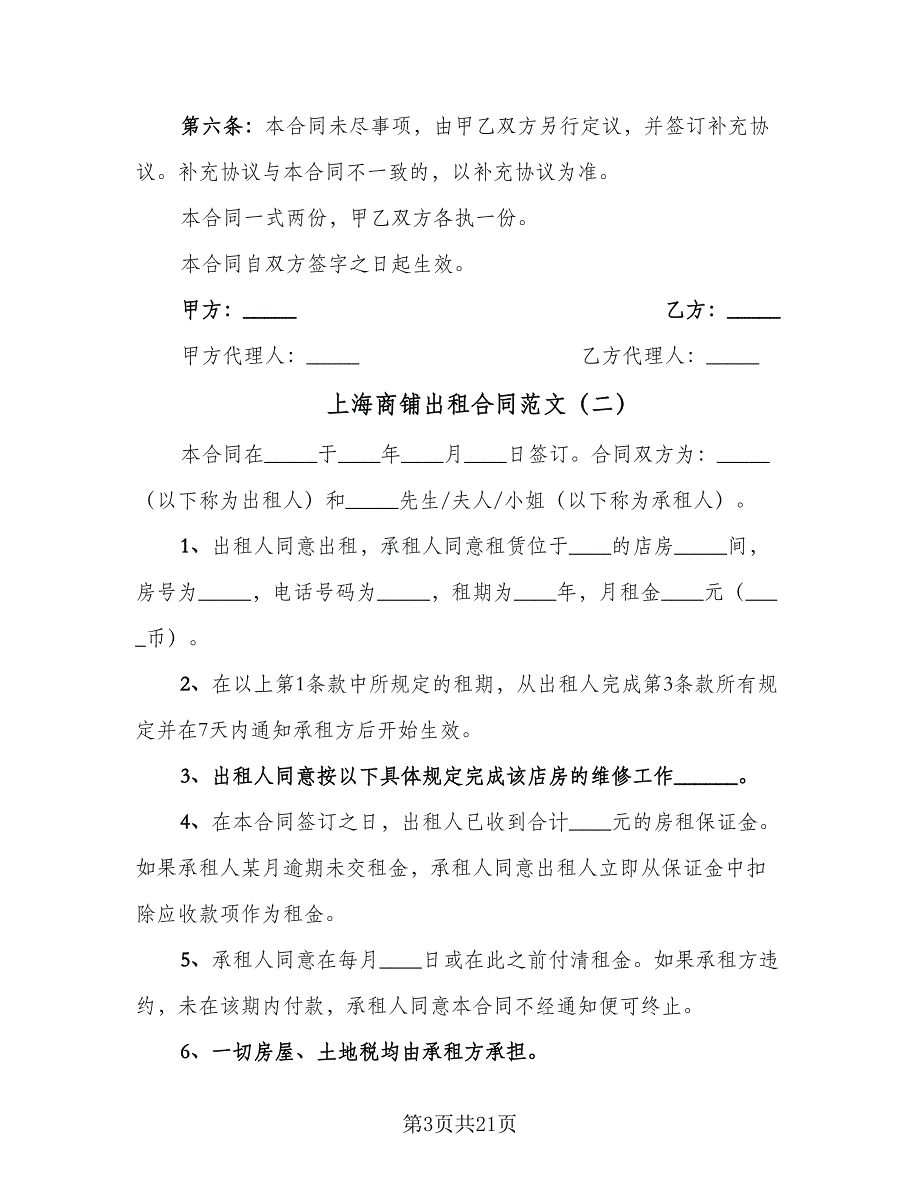 第六条：本合同未尽事项，由甲乙双方另行定议，并签订补充协
议。补充协议与本合同不一致的，以补充协议为准。
本合同一式两份，甲乙双方各执一份。
本合同自双方签字之日起生效。
甲方：_____ 乙方：_____
甲方代理人：_____ 乙方代理人：_____
上海商铺出租合同范文（二）
本合同在_____于____年____月____日签订。合同双方为：_____
（以下称为出租人）和_____先生/夫人/小姐（以下称为承租人）。
1、出租人同意出租，承租人同意租赁位于____的店房_____间，
房号为_____，电话号码为_____，租期为____年，月租金____元（___
_币）。
2、在以上第1条款中所规定的租期，从出租人完成第3条款所有规
定并在7天内通知承租方后开始生效。
3、出租人同意按以下具体规定完成该店房的维修工作______。
4、在本合同签订之日，出租人已收到合计____元的房租保证金。
如果承租人某月逾期未交租金，承租人同意出租人立即从保证金中扣
除应收款项作为租金。
5、承租人同意在每月____日或在此之前付清租金。如果承租方违
约，未在该期内付款，承租人同意本合同不经通知便可终止。
6、一切房屋、土地税均由承租方承担。
第3页共21页